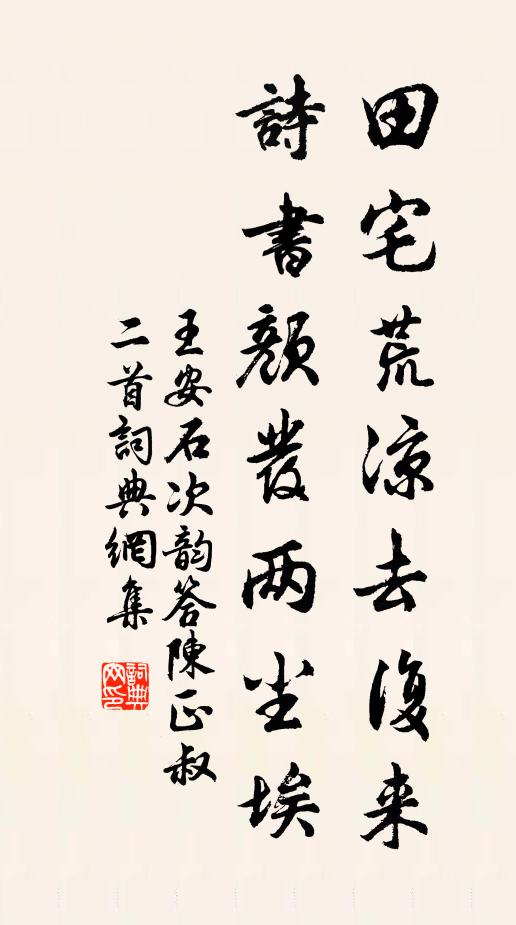 田宅荒凉去復来
詩書顔發两尘埃
王安石次韵答陳正叔
二首詞典網集
詞典网印